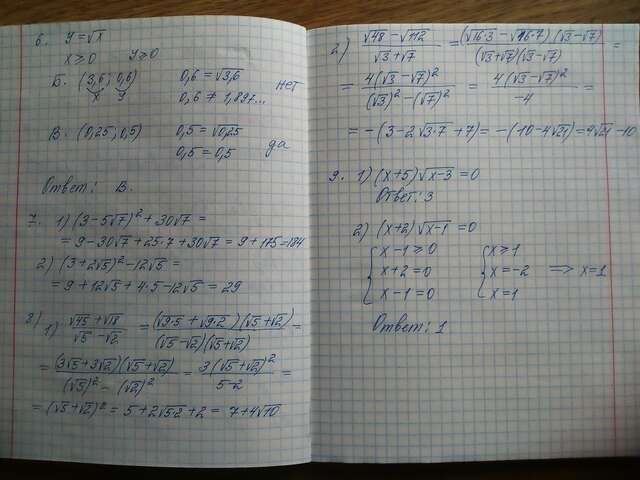 6. y=√x
x≥0 y≥0
Б. (3,6; 0,6) 0,6=√3,6 нет
x y 0,6≠1,897...
В. (0,25; 0,5) 0,5=√0,25 да
0,5=0,5
Ответ: В.
7. 1) (3-5√7)²+30√7=
=9-30√7+25·7+30√7=9+175=184
2) (3+2√5)²-12√5=
=9+12√5+4·5-12√5=29
8) 1) (√45+√18)/(√5-√2) = (√9·5+√9·2)(√5+√2)/(√5-√2)(√5+√2) =
= (3√5+3√2)(√5+√2)/((√5)²-(√2)²) = 3(√5+√2)²/(5-2) =
=(√5+√2)²=5+2√5·2+2=7+4√10
2) (√48-√112)/(√3+√7) = (√16·3-√16·7)(√3-√7)/(√3+√7)(√3-√7) =
= 4(√3-√7)²/((√3)²-(√7)²) = 4(√3-√7)²/-4 =
=-(3-2√3·7+7)=-(10-4√21)=4√21-10
9. 1) (x+5)√x-3=0
Ответ: 3
2) (x+2)√x-1=0
{ x-1≥0 { x≥1
x+2=0 x=-2 => x=1
x-1=0 x=1
Ответ: 1